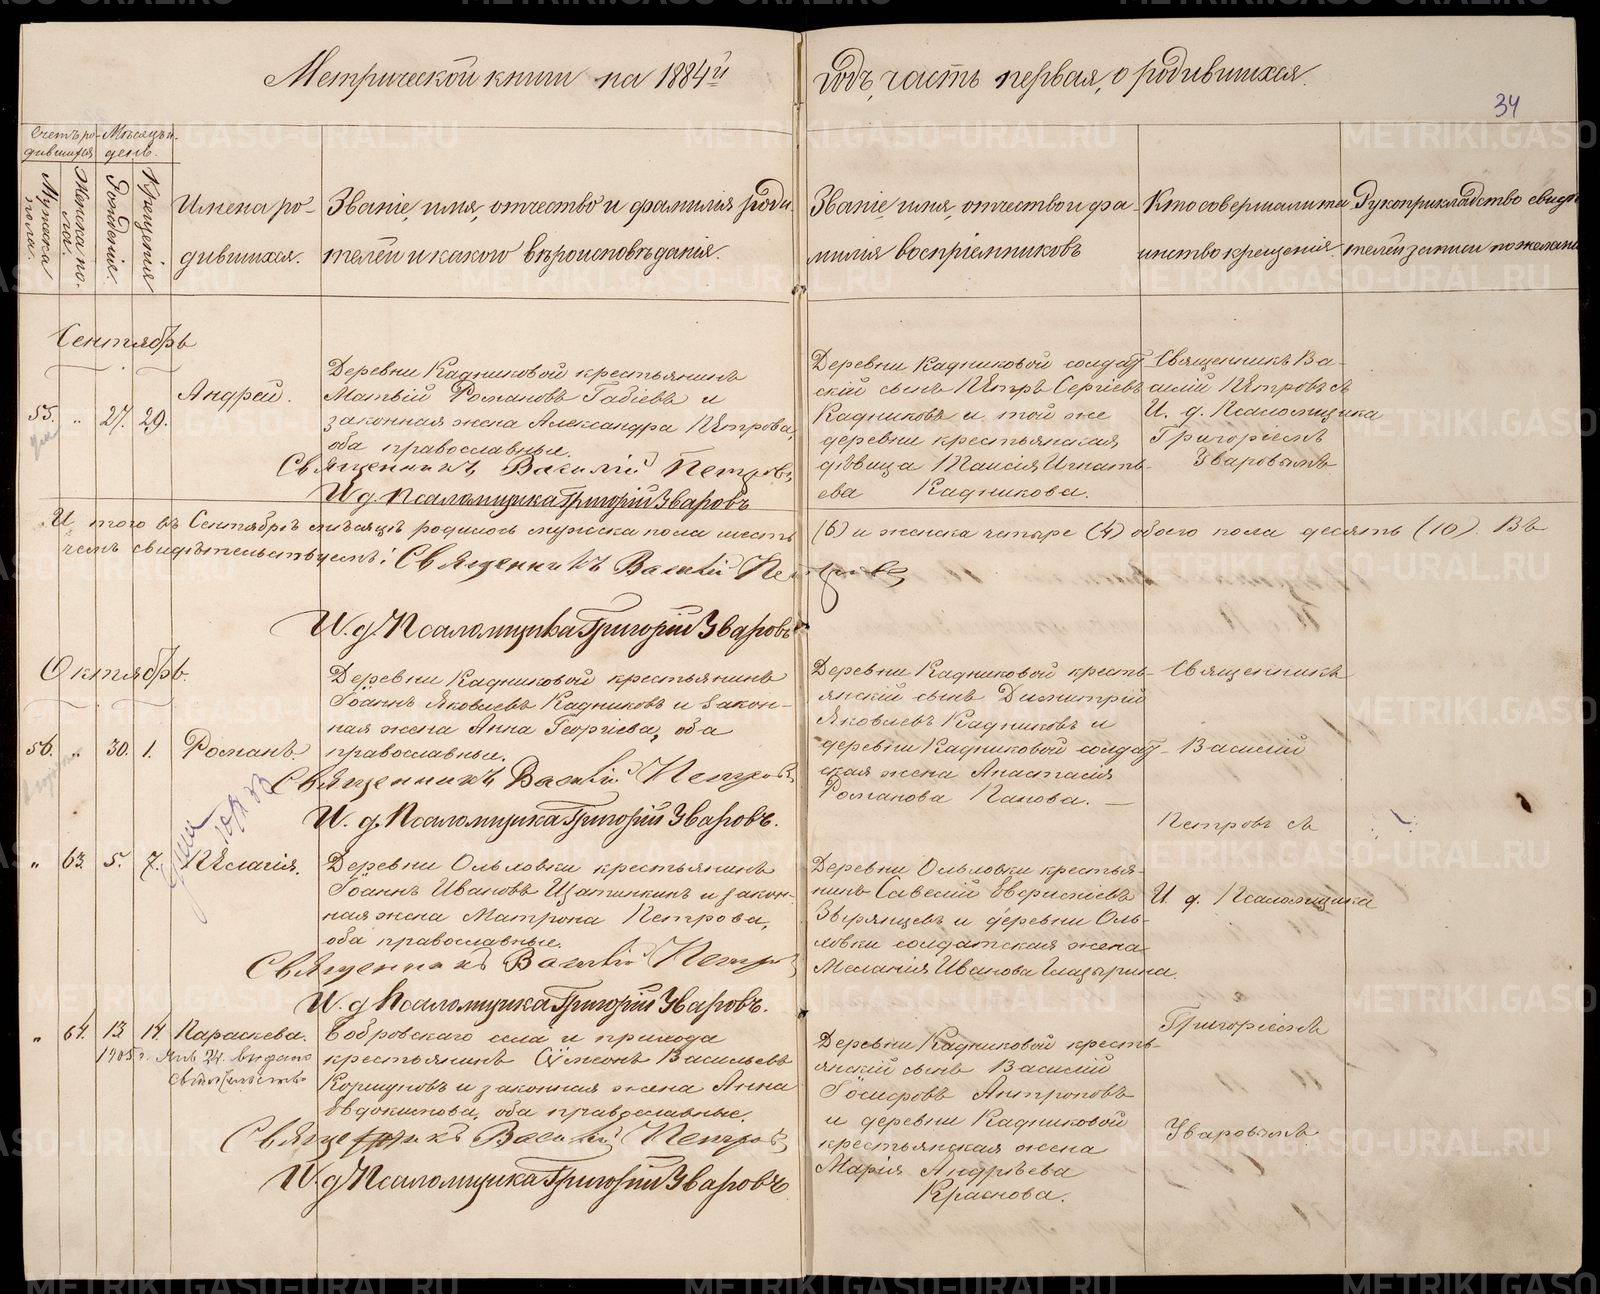 Метрической книги на 1884й годъ, часть первая, о родившихся.
34
Счетъ ро-
дившихся
Мѣсяцъ и
день.
Мужска
пола.
Женска по-
ла.
Рожденіе.
Крещенія
Имена ро-
дившихся.
Званіе, имя, отчество и фамилія роди-
телей и какого вѣроисповѣданія.
Званіе, имя, отчество и фа-
милія воспріемниковъ
Кто совершалъ та
инство крещенія.
Рукоприкладство свидѣ
телей записи по желані
Сентябрь
55. „ 27. 29.
Андрей.
Деревни Кадниковой крестьянинъ
Матвій Романовъ Габіевъ и
законная жена Александра Петрова,
оба православные.
Священникъ Василій Петровъ
И. д. Псаломщика Григорій Уваровъ
Деревни Кадниковой солдат-
скій сынъ Петръ Сергіевъ
Кадниковъ и той же
деревни крестьянская
дѣвица Таисія Игнать-
ева Кадникова.
Священникъ Ва-
силій Петровъ съ
И. д. Псаломщика
Григоріемъ
Уваровымъ
И того въ Сентябрѣ мѣсяцѣ родилось мужска пола шесть (6) и женска четыре (4) обоего пола десять (10). Въ
чемъ свидѣтельствуемъ: Священникъ Василій Петровъ
И. д. Псаломщика Григорій Уваровъ
Октябрь.
56. „ 30. 1.
Романъ.
Деревни Кадниковой крестьянинъ
Іоаннъ Яковлевъ Кадниковъ и закон-
ная жена Анна Георгіева, оба
православные.
Священникъ Василій Петровъ
И. д. Псаломщика Григорій Уваровъ.
Деревни Кадниковой кресть-
янскій сынъ Димитрій
Яковлевъ Кадниковъ и
деревни Кадниковой солдат-
ская жена Анастасія
Романова Панова.
Священникъ
Василій
Петровъ съ
И. д. Псаломщика
Григоріемъ
Уваровымъ
„ 63. 5. 7.
Пелагія.
Деревни Ольховки крестьянинъ
Іоаннъ Ивановъ Щапинкинъ и закон-
ная жена Матрона Петрова,
оба православные.
Священникъ Василій Петровъ
И. д. Псаломщика Григорій Уваровъ.
Деревни Ольховки крестья-
нинъ Савелій
Звѣрянцевъ и деревни Оль-
ховки солдатская жена
Меланія Иванова Глазырина.
„ 64. 13 14.
Параскева.
1905 г. Янв. 24. выдано
Бобровскаго села и прихода
крестьянинъ Сѵмеонъ Васильевъ
Коршуновъ и законная жена Анна
Евдокимова, оба православные.
Священникъ Василій Петровъ
И. д. Псаломщика Григорій Уваровъ
Деревни Кадниковой кресть-
янскій сынъ Василій
Іосифовъ Антроповъ
и деревни Кадниковой
крестьянская жена
Марія Андрѣева
Краснова.
METRIKI.GASO-URAL.RU